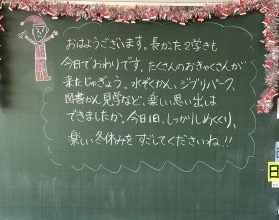 おはようございます。長かった2学きも
今日でおわりです。たくさんのおきゃくさんが
来たじゅぎょう、水ぞくかん、ジブリパーク、
図書かん見学など、楽しい思い出は
できましたか。今日1日、しっかりしめくくり、
楽しい冬休みをすごしてくださいね!!
日